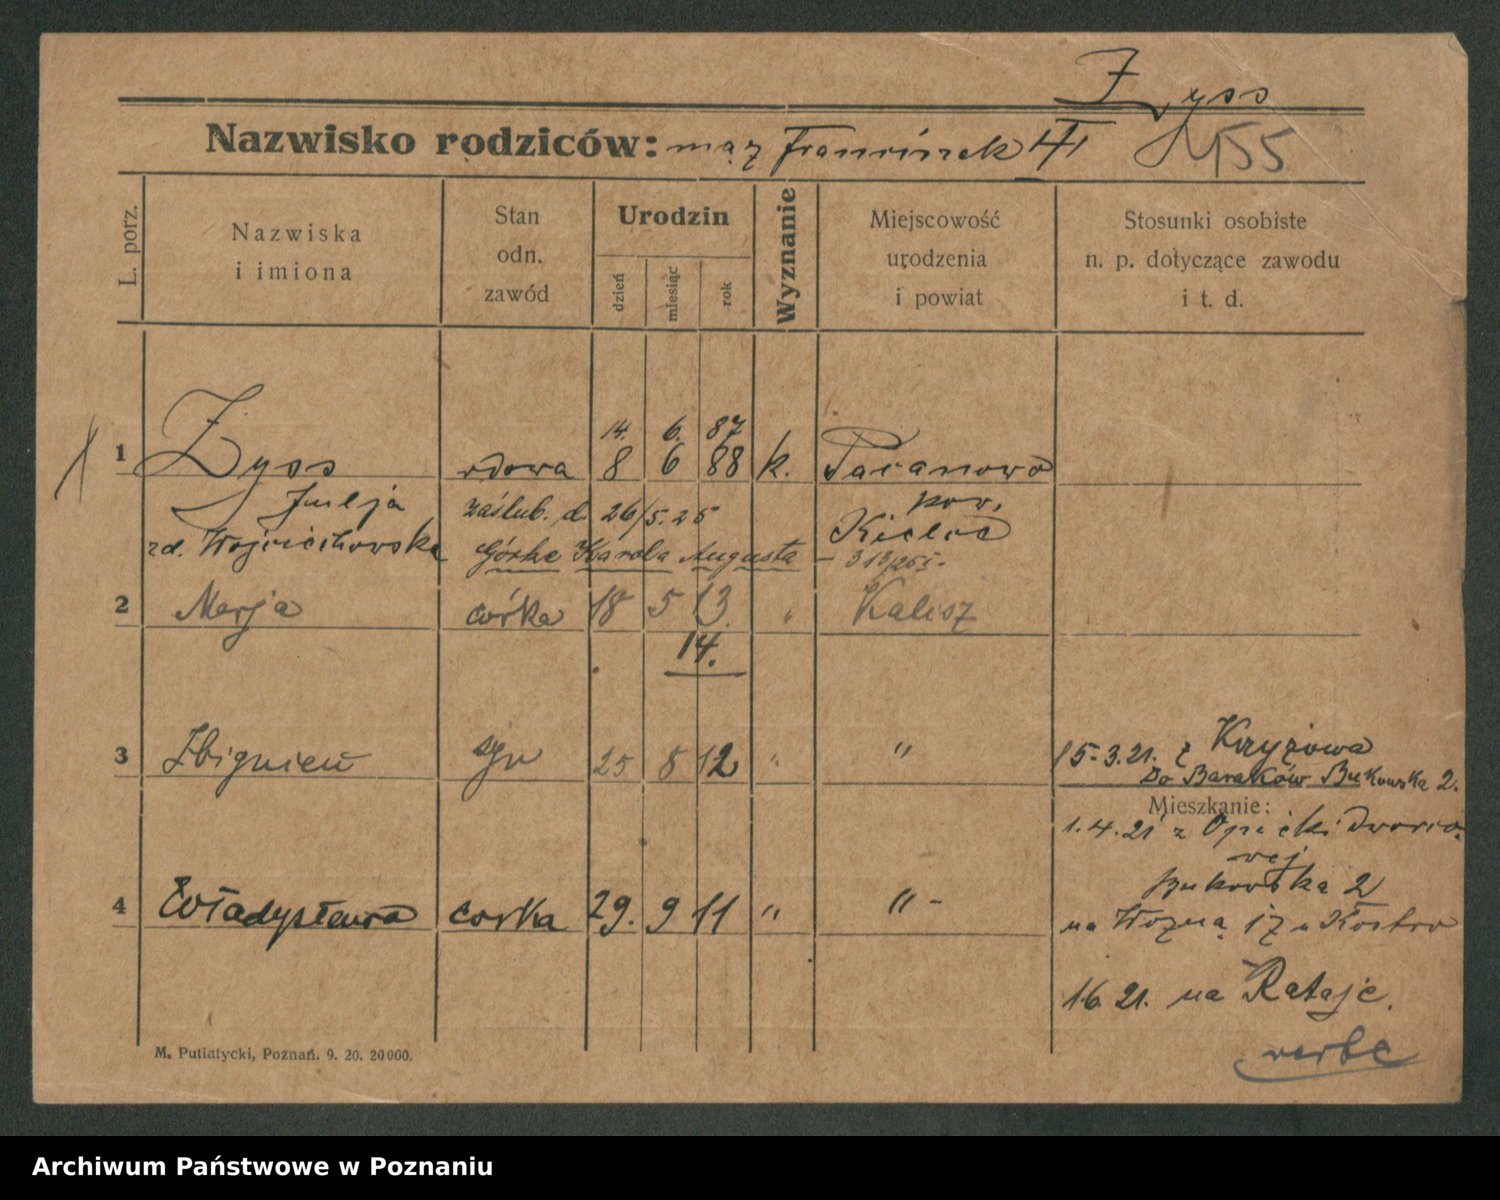 Zyss
Nazwisko rodziców: mąż Franciszek
455
L. porz.
Nazwiska i imiona
Stan odn. zawód
Urodzin
dzień
miesiąc
rok
Wyznanie
Miejscowość urodzenia i powiat
Stosunki osobiste n. p. dotyczące zawodu i t. d.
14. 6. 87
1 Zyss wdowa 8 6 88 k. Pacanowo
Julja zaślub. d. 26/5.25 pow.
zd. Wojciechowska Kielce
Górke Karola Augusta - 313/255
2 Marja córka 18 5 13. " Kalisz
14.
3 Zbigniew syn 25 8 12 " " 15.3.21. z Krzyżowa
Do Baraków Bukowska 2.
Mieszkanie:
1.4.21 z Opieki dworco-
wej
Bukowska 2
4 Władysława corka 29. 9 11 " " -
na Woźną 17 u Kostro
1.6.21. na Rataje.
verte
M. Putiatycki, Poznań. 9. 20. 20000.
Archiwum Państwowe w Poznaniu